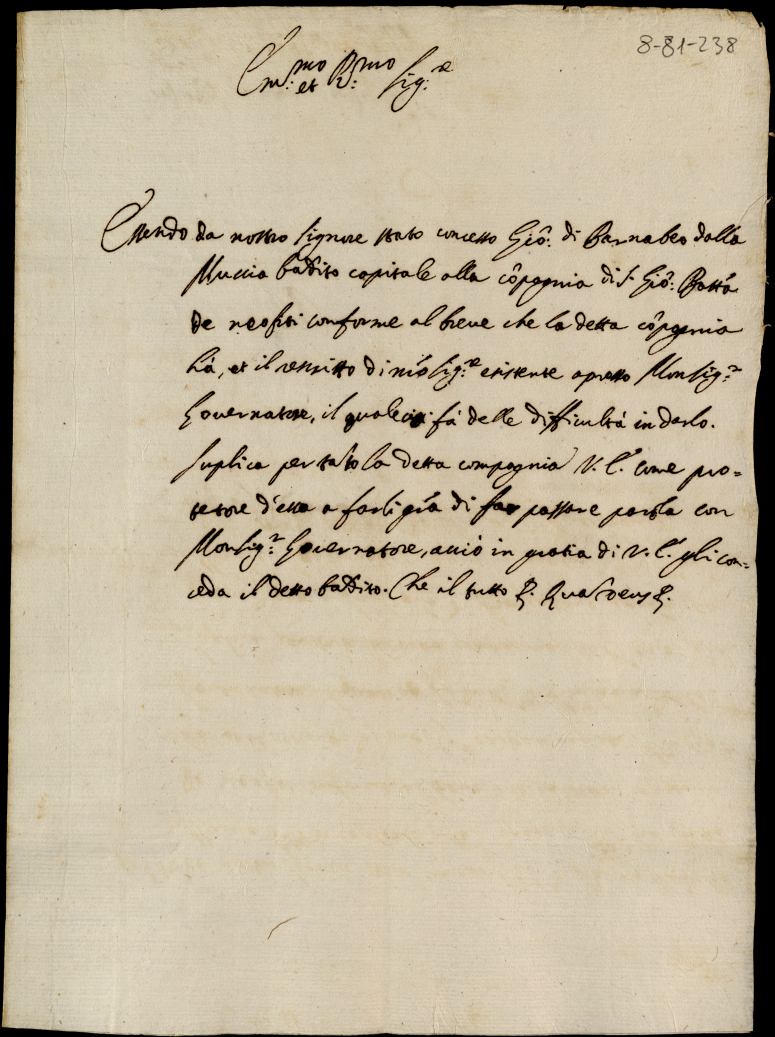 8-81-238
Em.mo et R.mo Sig.re
Essendo da nostro Signore stato concesso Gio: di Barnabeo dalla
Muccia badito capitale alla cōpagnia di S. Gio: Batta
de neofiti conforme al breve che la detta cōpagnia
hà, et il rescritto di nro Sig.re esistente apresso Monsig.r
Governatore, il quale fà delle difficultà in darlo.
Suplica per tāto la detta compagnia V. E. come pro-
tetore d'essa a farli grā di far passare parola con
Monsig.r Governatore, acciò in gratia di V. E. gli con-
ceda il detto badito. Che il tutto &. Quas Deus &.